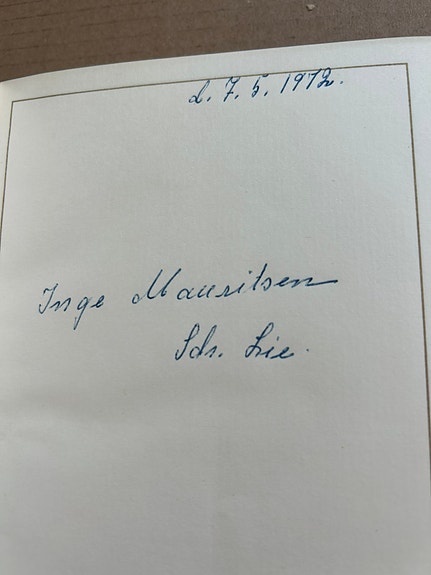 d. 7. 5. 1972.
Inge Mauritsen
Sdr. Lie.